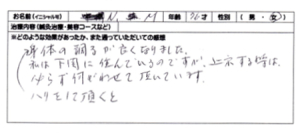 お名前(イニシャル可) N M 年齢 才 性別 ( 男 ・ 女 )
治療内容(鍼灸治療・美容コースなど)
※どのような効果があったか、また通っていただいての感想
身体の調子が良くなりました。
私は下関に住んでいるのですが、上京する時は、
必らず伺がわせて頂いています。
ハリをして頂くと